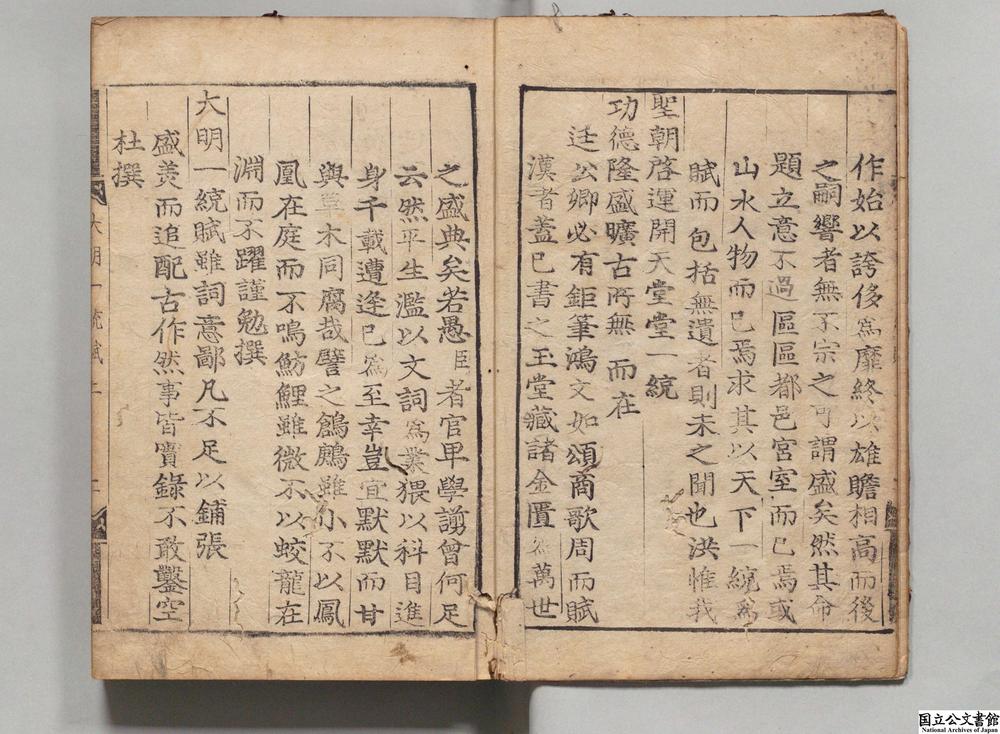 作始以誇侈為靡終以雄贍相高而後
之嗣響者無不宗之可謂盛矣然其命
題立意不過區區都邑宮室而已焉或
山水人物而已焉求其以天下一統為
賦而包括無遺者則未之聞也洪惟我
聖朝啓運開天堂堂一統
功德隆盛曠古所無而在
廷公卿必有鉅筆鴻文如頌商歌周而賦
漢者蓋已書之玉堂藏諸金匱為萬世
之盛典矣若愚臣者官卑學謭曾何足
云然平生濫以文詞為業猥以科目進
身千載遭逢已為至幸豈宜默默而甘
與草木同腐哉譬之鶬鷃雖小不以鳳
凰在庭而不鳴魴鯉雖微不以蛟龍在
淵而不躍謹勉撰
大明一統賦雖詞意鄙凡不足以鋪張
盛美而追配古作然事皆實錄不敢鑿空
杜撰
大明一統賦
国立公文書館
National Archives of Japan